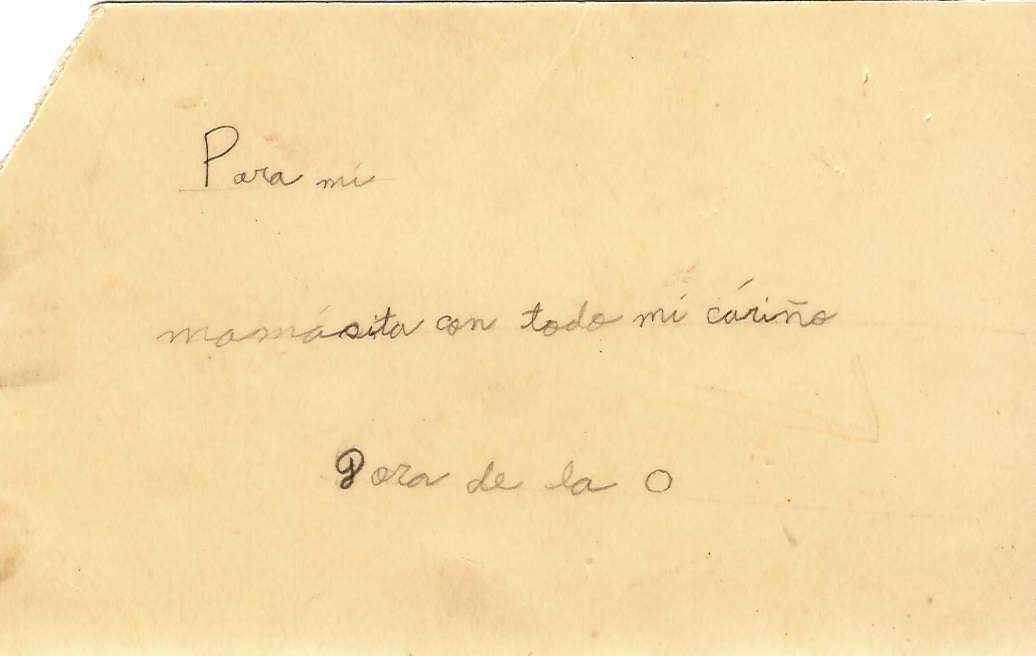 Para mi
mamásita con todo mi cáriño
Dora de la O